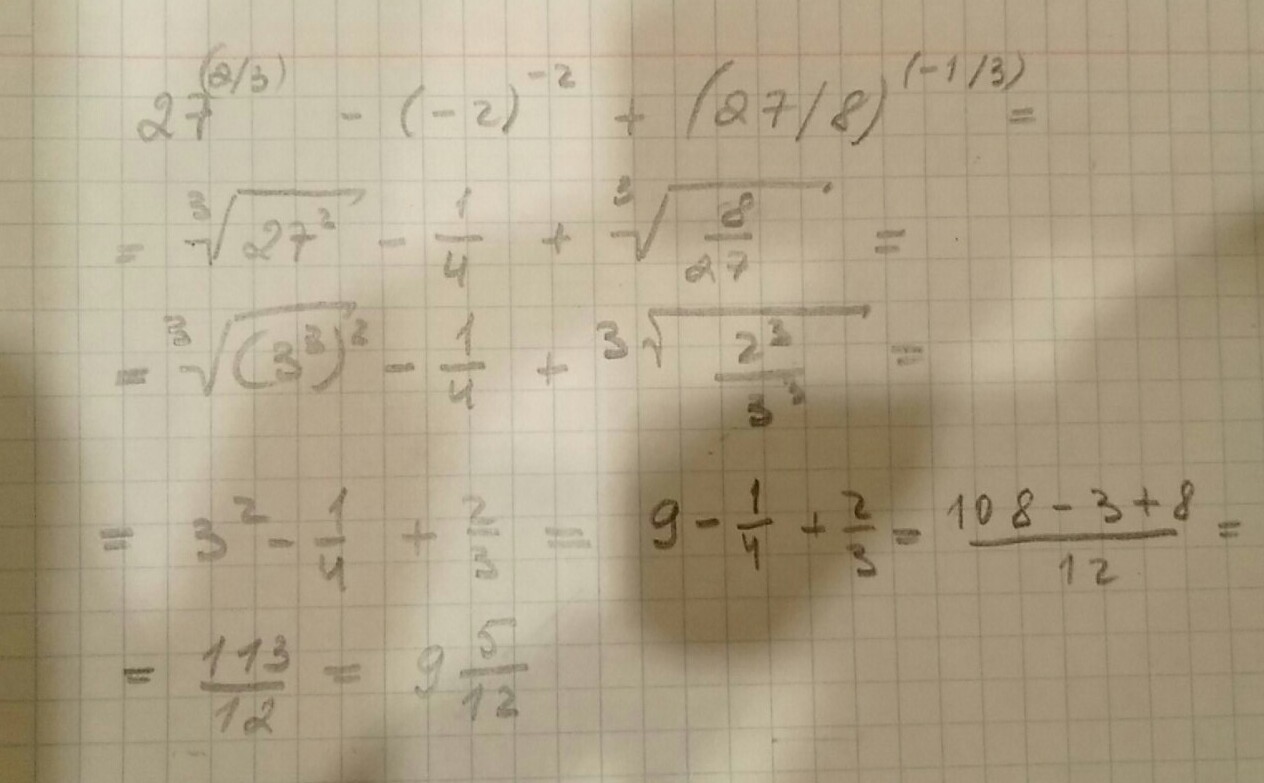 27^(2/3) - (-2)^-2 + (27/8)^(-1/3) =
= ∛(27²) - 1/4 + ∛(8/27) =
= ∛((3³)²) - 1/4 + ∛(2³/3³) =
= 3² - 1/4 + 2/3 = 9 - 1/4 + 2/3 = (108 - 3 + 8)/12 =
= 113/12 = 9 5/12